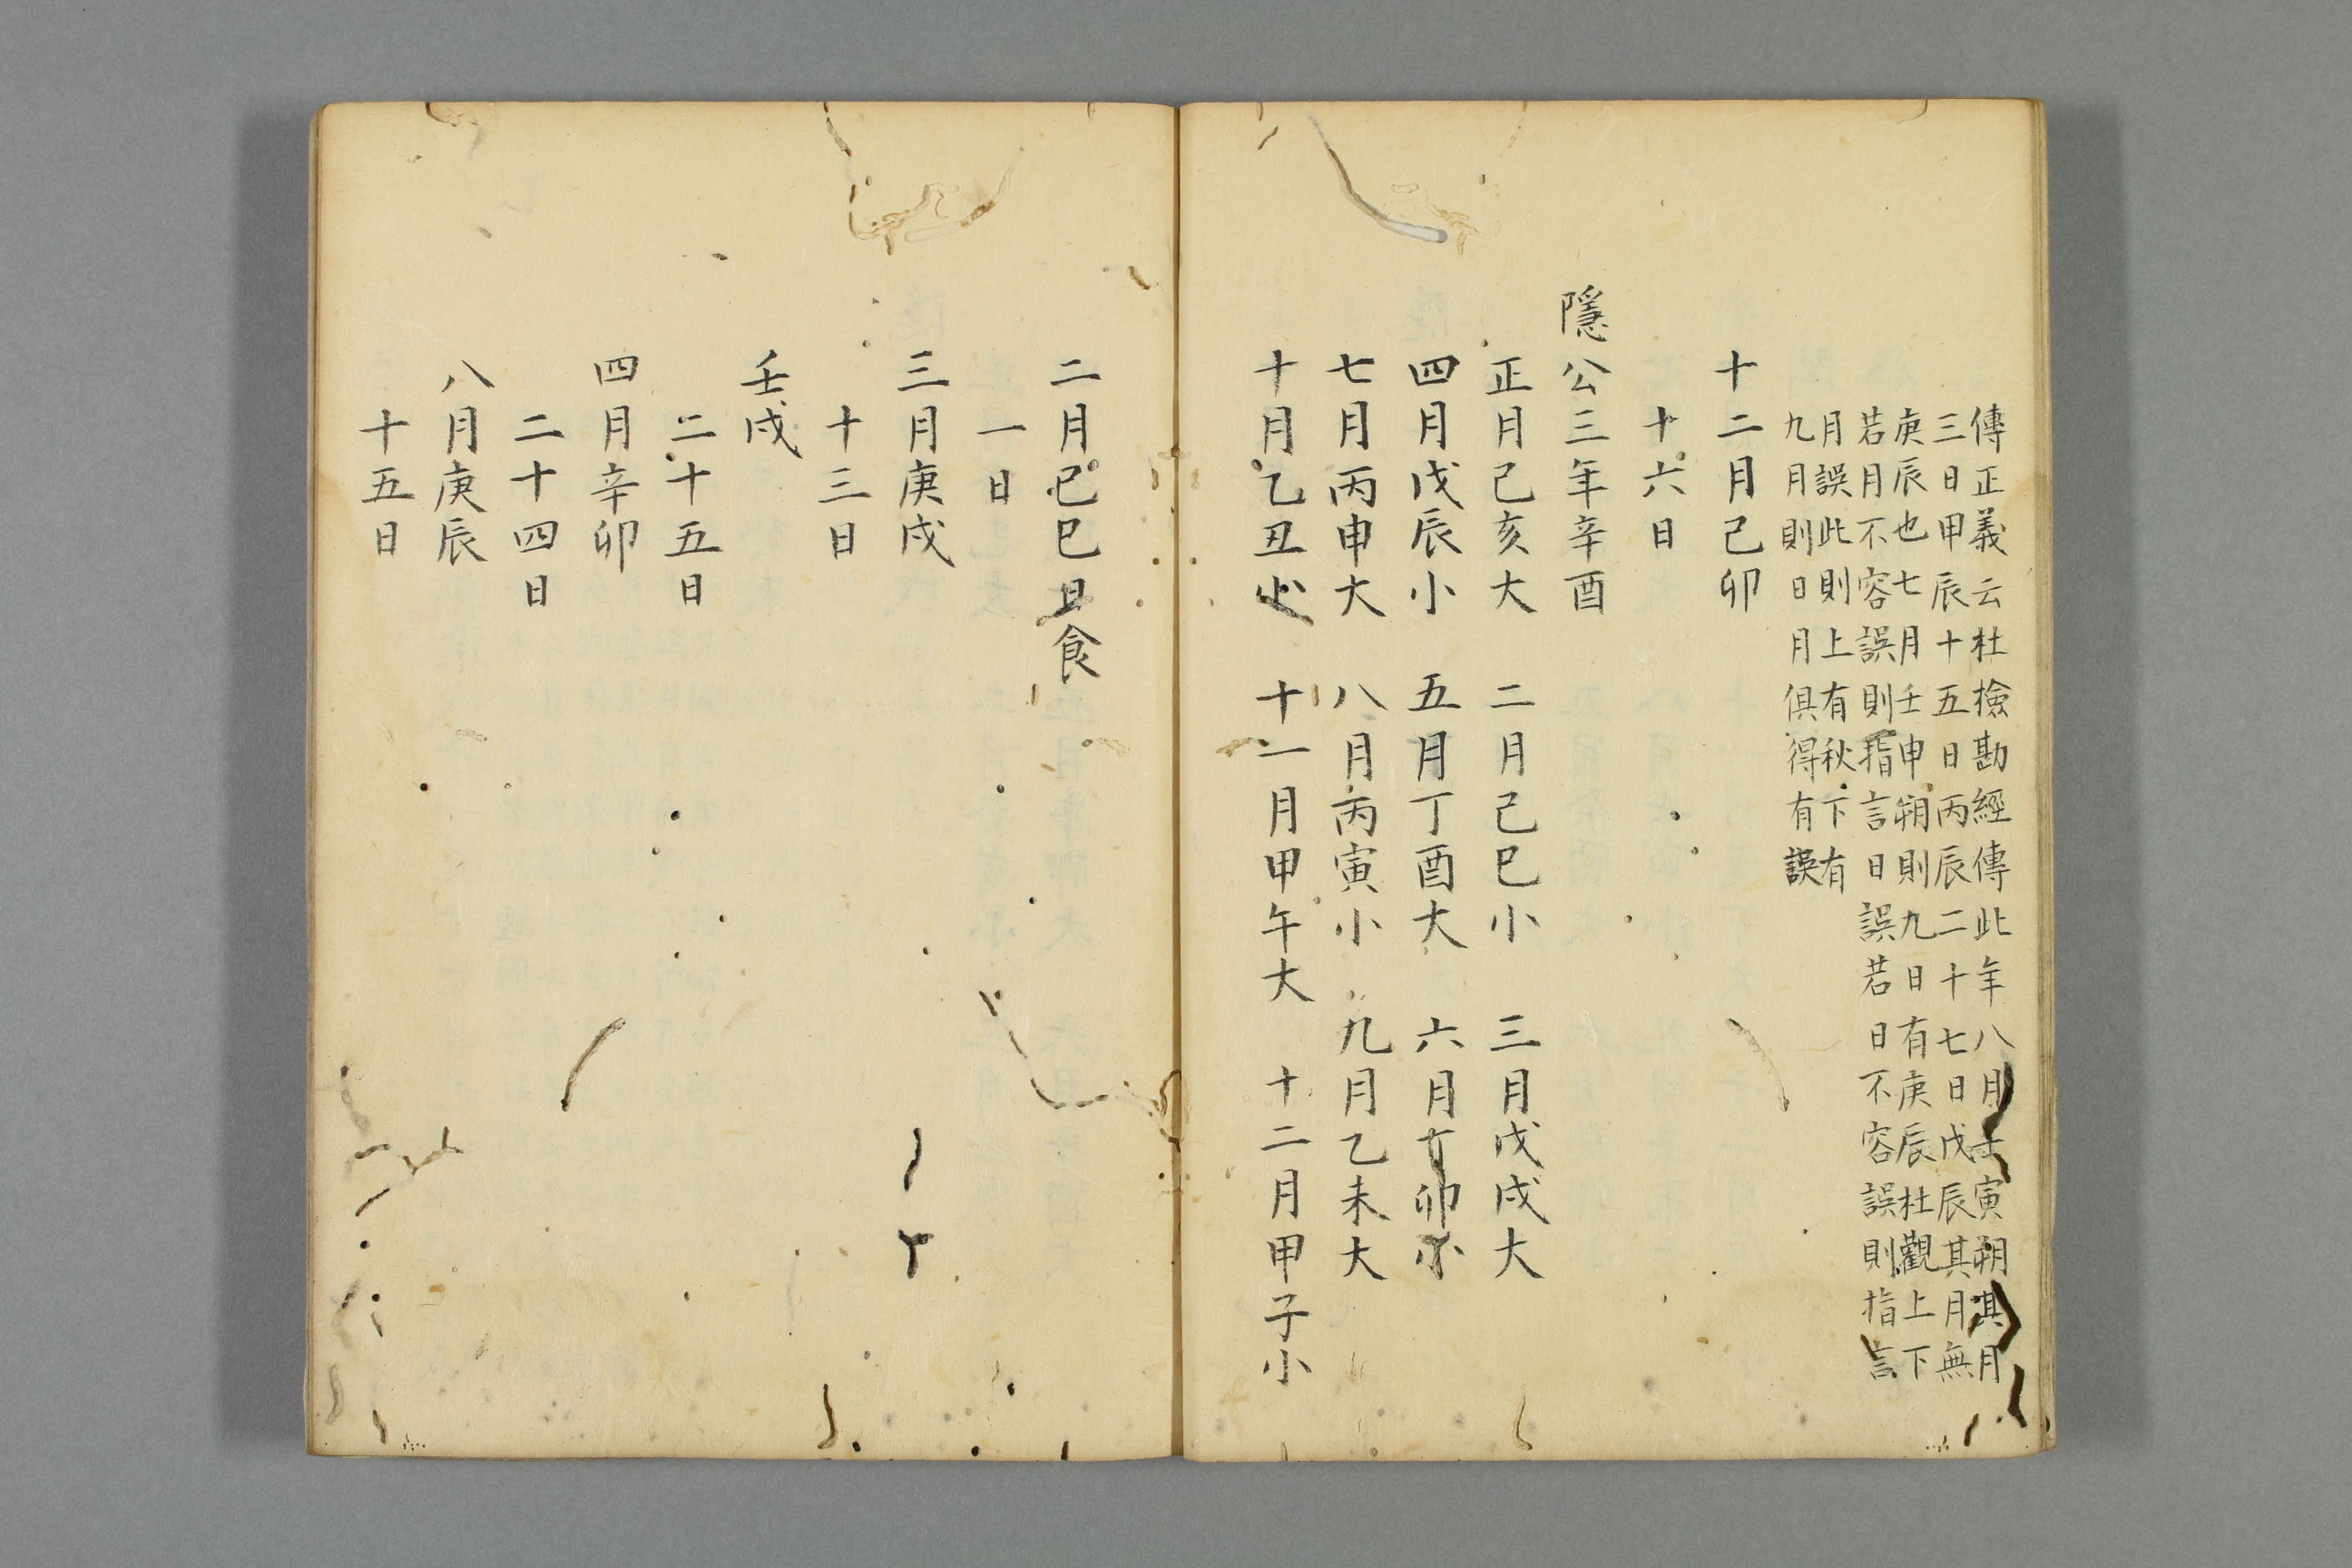 傳正義云杜檢勘經傳此年八月壬寅朔其月
三日甲辰十五日丙辰二十七日戊辰其月無
庚辰也七月壬申朔則九日有庚辰杜觀上下
若月不容誤則指言日誤若日不容誤則指言
月誤此則上有秋下有
九月則日月俱得有誤
十二月己卯
十六日
隱公三年辛酉
正月己亥大　二月己巳小　三月戊戌大
四月戊辰小　五月丁酉大　六月丁卯小
七月丙申大　八月丙寅小　九月乙未大
十月乙丑小　十一月甲午大　十二月甲子小
二月己巳日食
一日
三月庚戌
十三日
壬戌
二十五日
四月辛卯
二十四日
八月庚辰
十五日